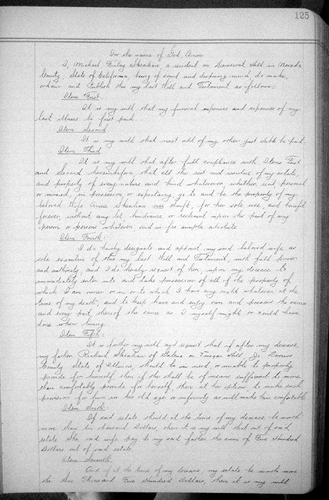 125
In the name of God, Amen
I, Michael Finley Shanahan a resident on Greaserat Hill in Nevada
County State of California, being of sound and disposing mind do make,
ordain and Publish this my last Will and Testament as follows:
Item First
It is my will that my funeral expenses and expenses of my
last illness be first paid.
Item Second
It is my will that next all of my other just debts be paid.
Item Third
It is my will that after full compliance with Items First
and Second hereinbefore, that all the rest and residue of my estate,
and property of every nature and kind whatsoever, whether real personal
or mixed, in possession or expectancy go to and be the property of my
beloved Wife Annie Shanahan for her sole use, and benefit
forever, without any let hindrance or restraint upon the part of any
person or persons whatever and in fee simple absolute
Item Fourth:
I do hereby designate and appoint my said beloved wife as
sole executrix of this my last Will and Testament, with full power
and authority, and I do hereby request of her, upon my decease to
immediately enter into and take possession of all of the property of
which I am owner or in which I have any right or interest at the
time of my death, and to keep have and enjoy own and possess the same
and every part thereof the same as I myself might or could have
done when living.
Item Fifth:
It is further my will and request that if after my decease,
my father Richard Shanahan of
County State of Illinois, should be in need, or unable to properly
provide for himself, then if she shall be of means sufficient to more
than comfortably provide for herself, then at her option to make such
provision for him in his old age or infirmity as will make him comfortable
Item Sixth:
If said estate should at the time of my decease be worth
more than Ten Thousand Dollars, then it is my will that out of said
estate She said wife pay to my said father the sum of Five Hundred
Dollars out of said estate.
Item Seventh:
And if at the time of my decease, my estate be worth more
than Thousand Five Hundred Dollars, then it is my will